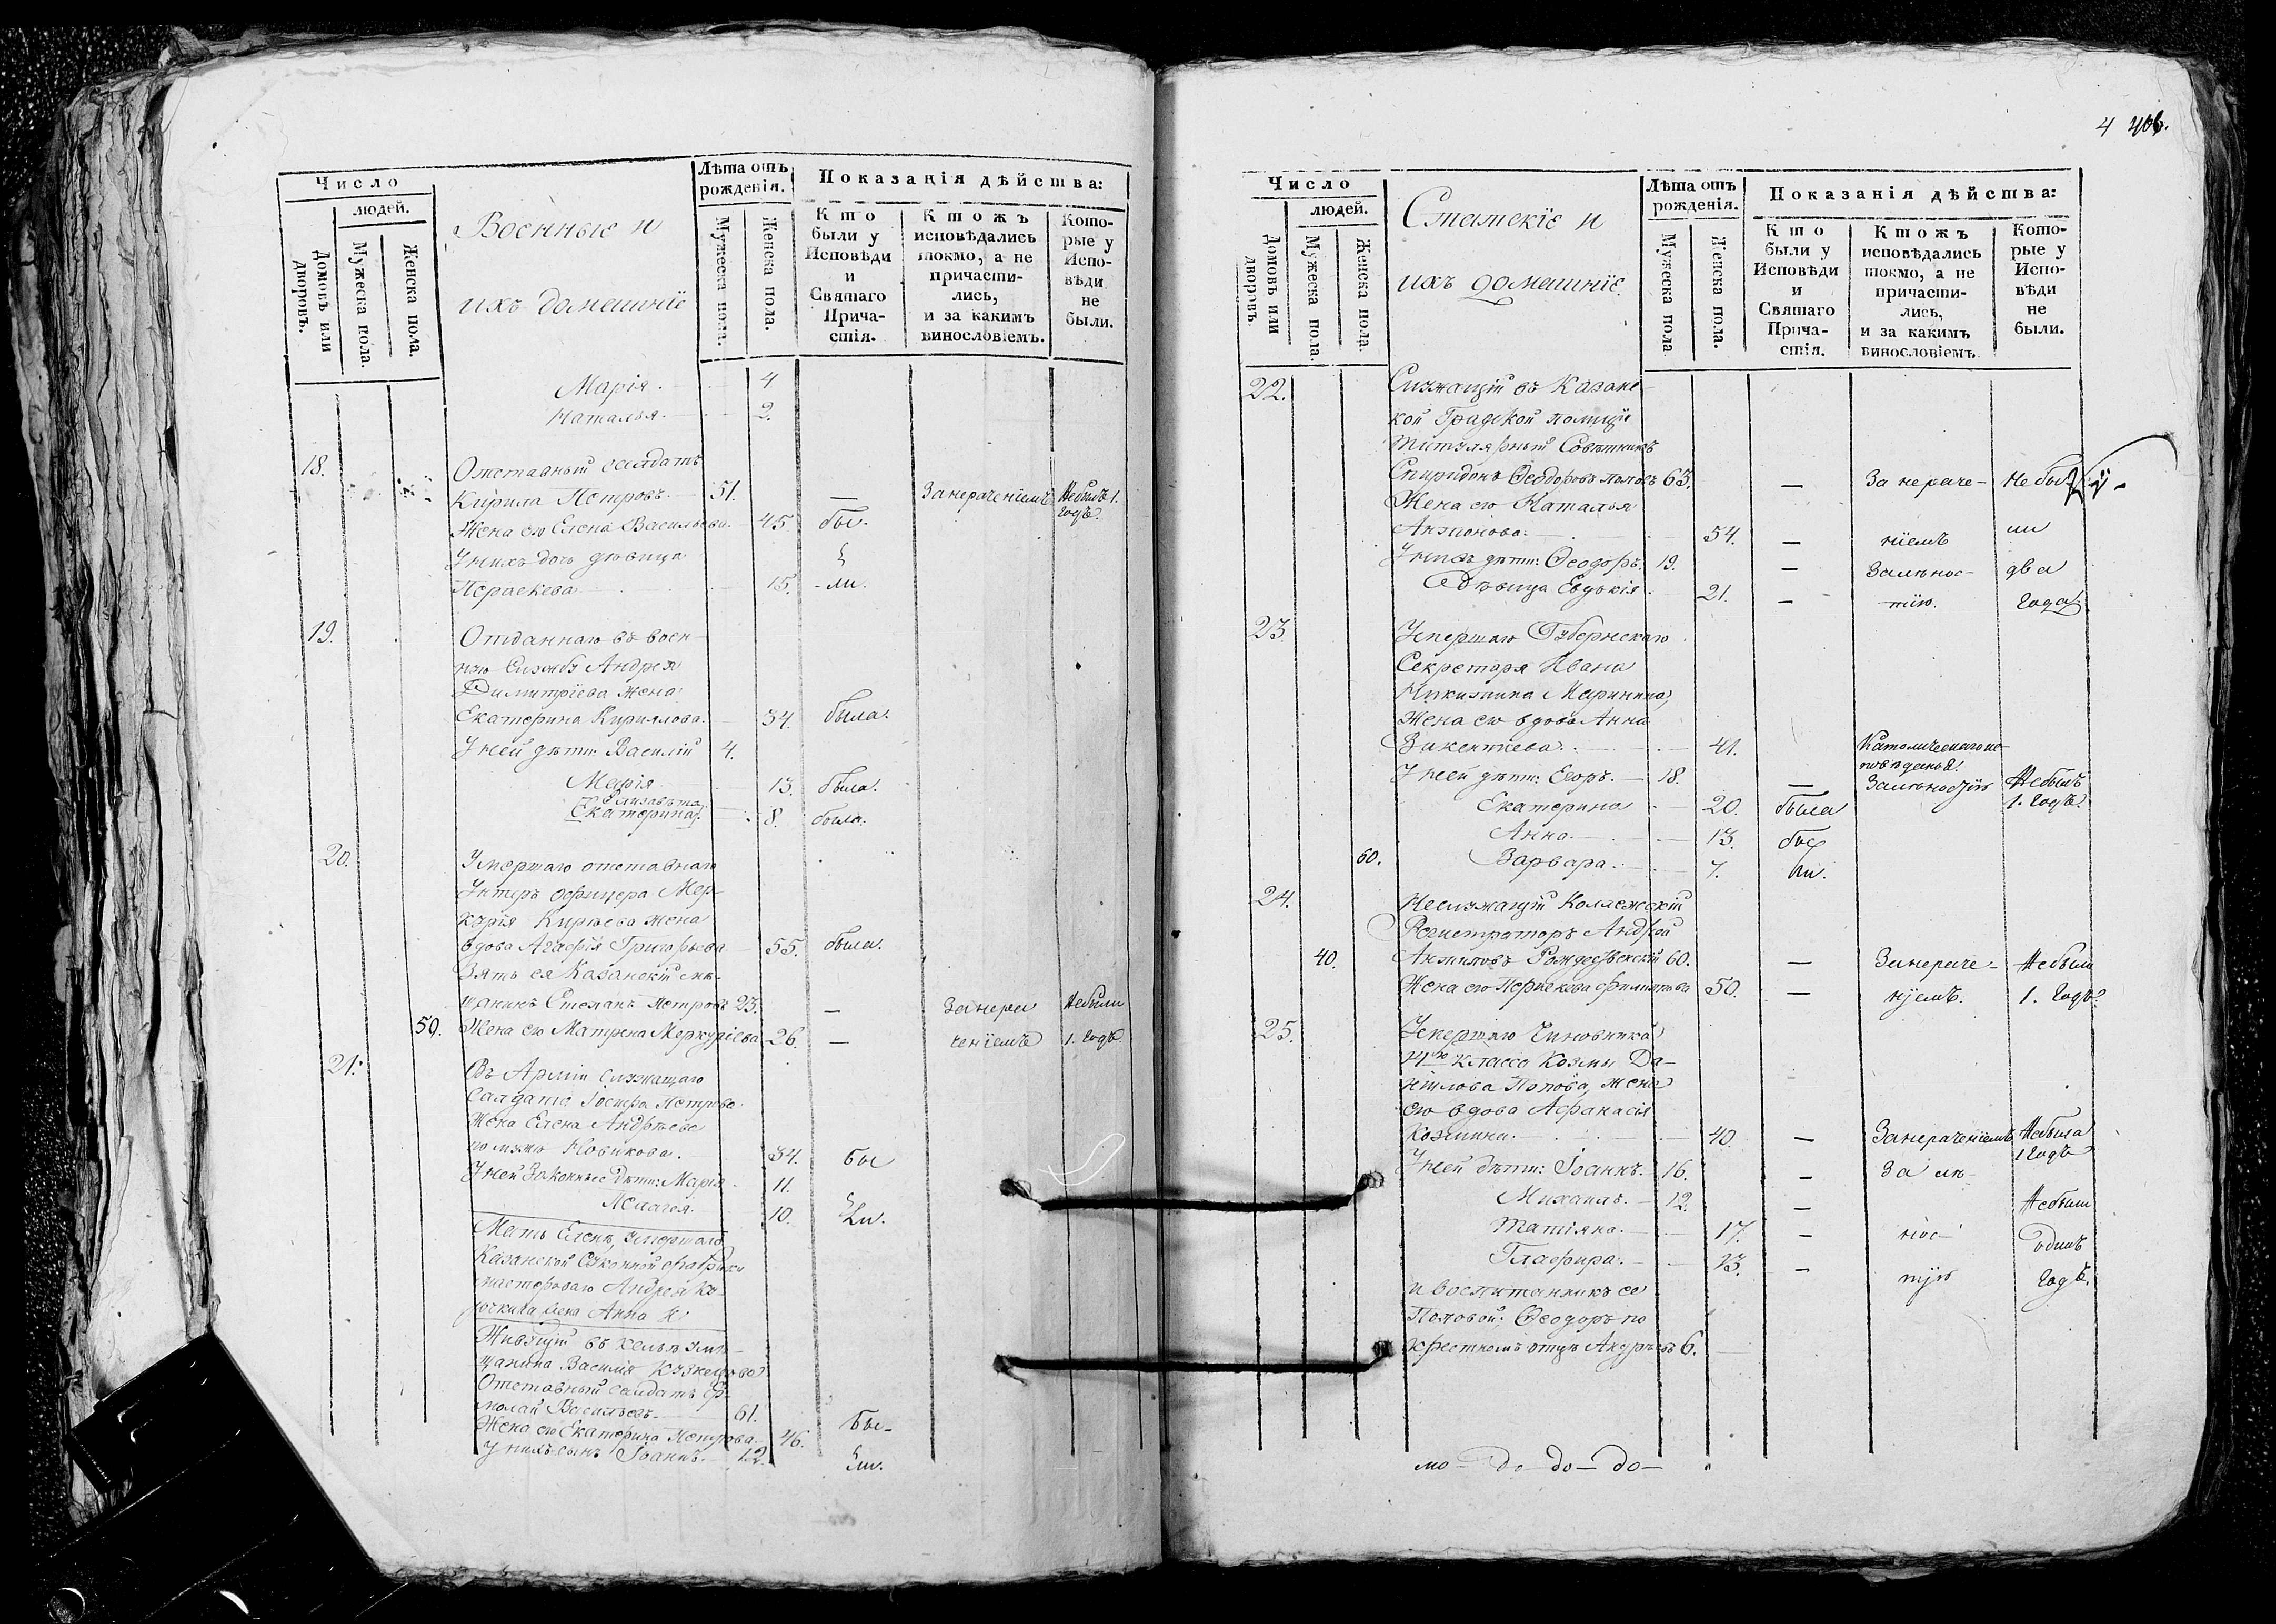 Число
людей.
Домовъ или дворовъ.
Мужеска пола.
Женска пола.
Военные и
ихъ домашніе
Лѣта отъ рожденія.
Мужеска пола.
Женска пола.
Показанія дѣйства:
Кто были у Исповѣди и Святаго Прича-стія.
Ктожъ исповѣдались токмо, а не причасти-лись, и за какимъ винословіемъ.
Кото-рые у Испо-вѣди не были.
Марія. 4.
Наталья. 2.
18. Отставный солдатъ
Кирила Петровъ. 51. — За нераченіемъ Не былъ 1. годъ.
Жена его Елена Васильева. 45. бы-
У нихъ дочь дѣвица
Параскева 15. -ли.
19. Отданнаго въ воен-
ную службу Андрея
Димитріева жена
Екатерина Кирилова. 34. была.
У ней дѣти: Василій 4.
Марія 13. была.
Елизавета
Екатерина. 8. была.
20. Умершаго отставнаго
Унтеръ офицера Мер-
курія Кирѣева жена
вдова Агафія Григорьева 55. была.
Зять ея Казанскій мѣ-
щанинъ Степанъ Петровъ 23. — За нера Не были
59. Жена его Матрена Меркуріева 26. — ченіемъ 1. годъ.
21. Въ Арміи служащаго
Салдата Петрова
Жена Елена Андрѣева
по мужѣ Новикова. 34. бы
У ней законные дѣти: Марія 11.
Пелагея. 10. ли.
Мать Елены, умершаго
Казанской Суконной фабрики
мастероваго Андрея Ку
жена Анна
Живущій въ кельѣ у мѣ-
щанина Василія Кузнецова
Отставный солдатъ Ер-
молай Васильевъ. 61.
Жена его Екатерина Петрова. 46. Бы-
У нихъ сынъ Іоаннъ. 12. ли.
4 406.
Число
людей.
Домовъ или дворовъ.
Мужеска пола.
Женска пола.
Статскіе и
ихъ домашніе.
Лѣта отъ рожденія.
Мужеска пола
Женска пола.
Показанія дѣйства:
Кто были у Исповѣди и Святаго Прича-стія.
Ктожъ исповѣдались токмо, а не причасти-лись, и за какимъ винословіемъ.
Кото-рые у Испо-вѣди не были.
22. Служащій въ Казанс-
кой Градской полиціи
Титулярный Совѣтникъ
Спиридонъ Ѳеодоровъ Поповъ 63. — За нераче- Не бы
Жена его Наталья
Антонова. 54. — ніемъ ли
У нихъ дѣти: Ѳеодоръ. 19. — За лѣнос- два
дѣвица Евдокія 21. — тію. года.
23. Умершаго Губернскаго
Секретаря Ивана
Никитина Маринина,
жена его вдова Анна
Викентіева. 41. Католическаго ис-
повѣданія.
У ней дѣти: Егоръ. 18. — За лѣностію Не былъ
Екатерина 20. была 1. годъ.
Анна. 13. бы
60. Варвара. 7. ли.
24. Неслужащій Коллежскій
Регистраторъ Андрей
40. Рождественскій 60. — За нераче- Не были
Жена его 50. — ніемъ. 1. годъ.
25. Умершаго Чиновника
14го класса Козмы Да-
нилова Попова, жена
его вдова Афанасія
Козмина. 40. — За нераченіемъ Не была
1 годъ
У ней дѣти: Іоаннъ. 16. — За лѣ-
Михаилъ. 12. — Не были
Татіяна. 17. — нос- одинъ
Глафира. 13. — тію годъ.
и воспитанникъ ея
Поповой: Ѳеодоръ по
крестномъ отцѣ Андрѣевъ 6.
мо — до — до — до —